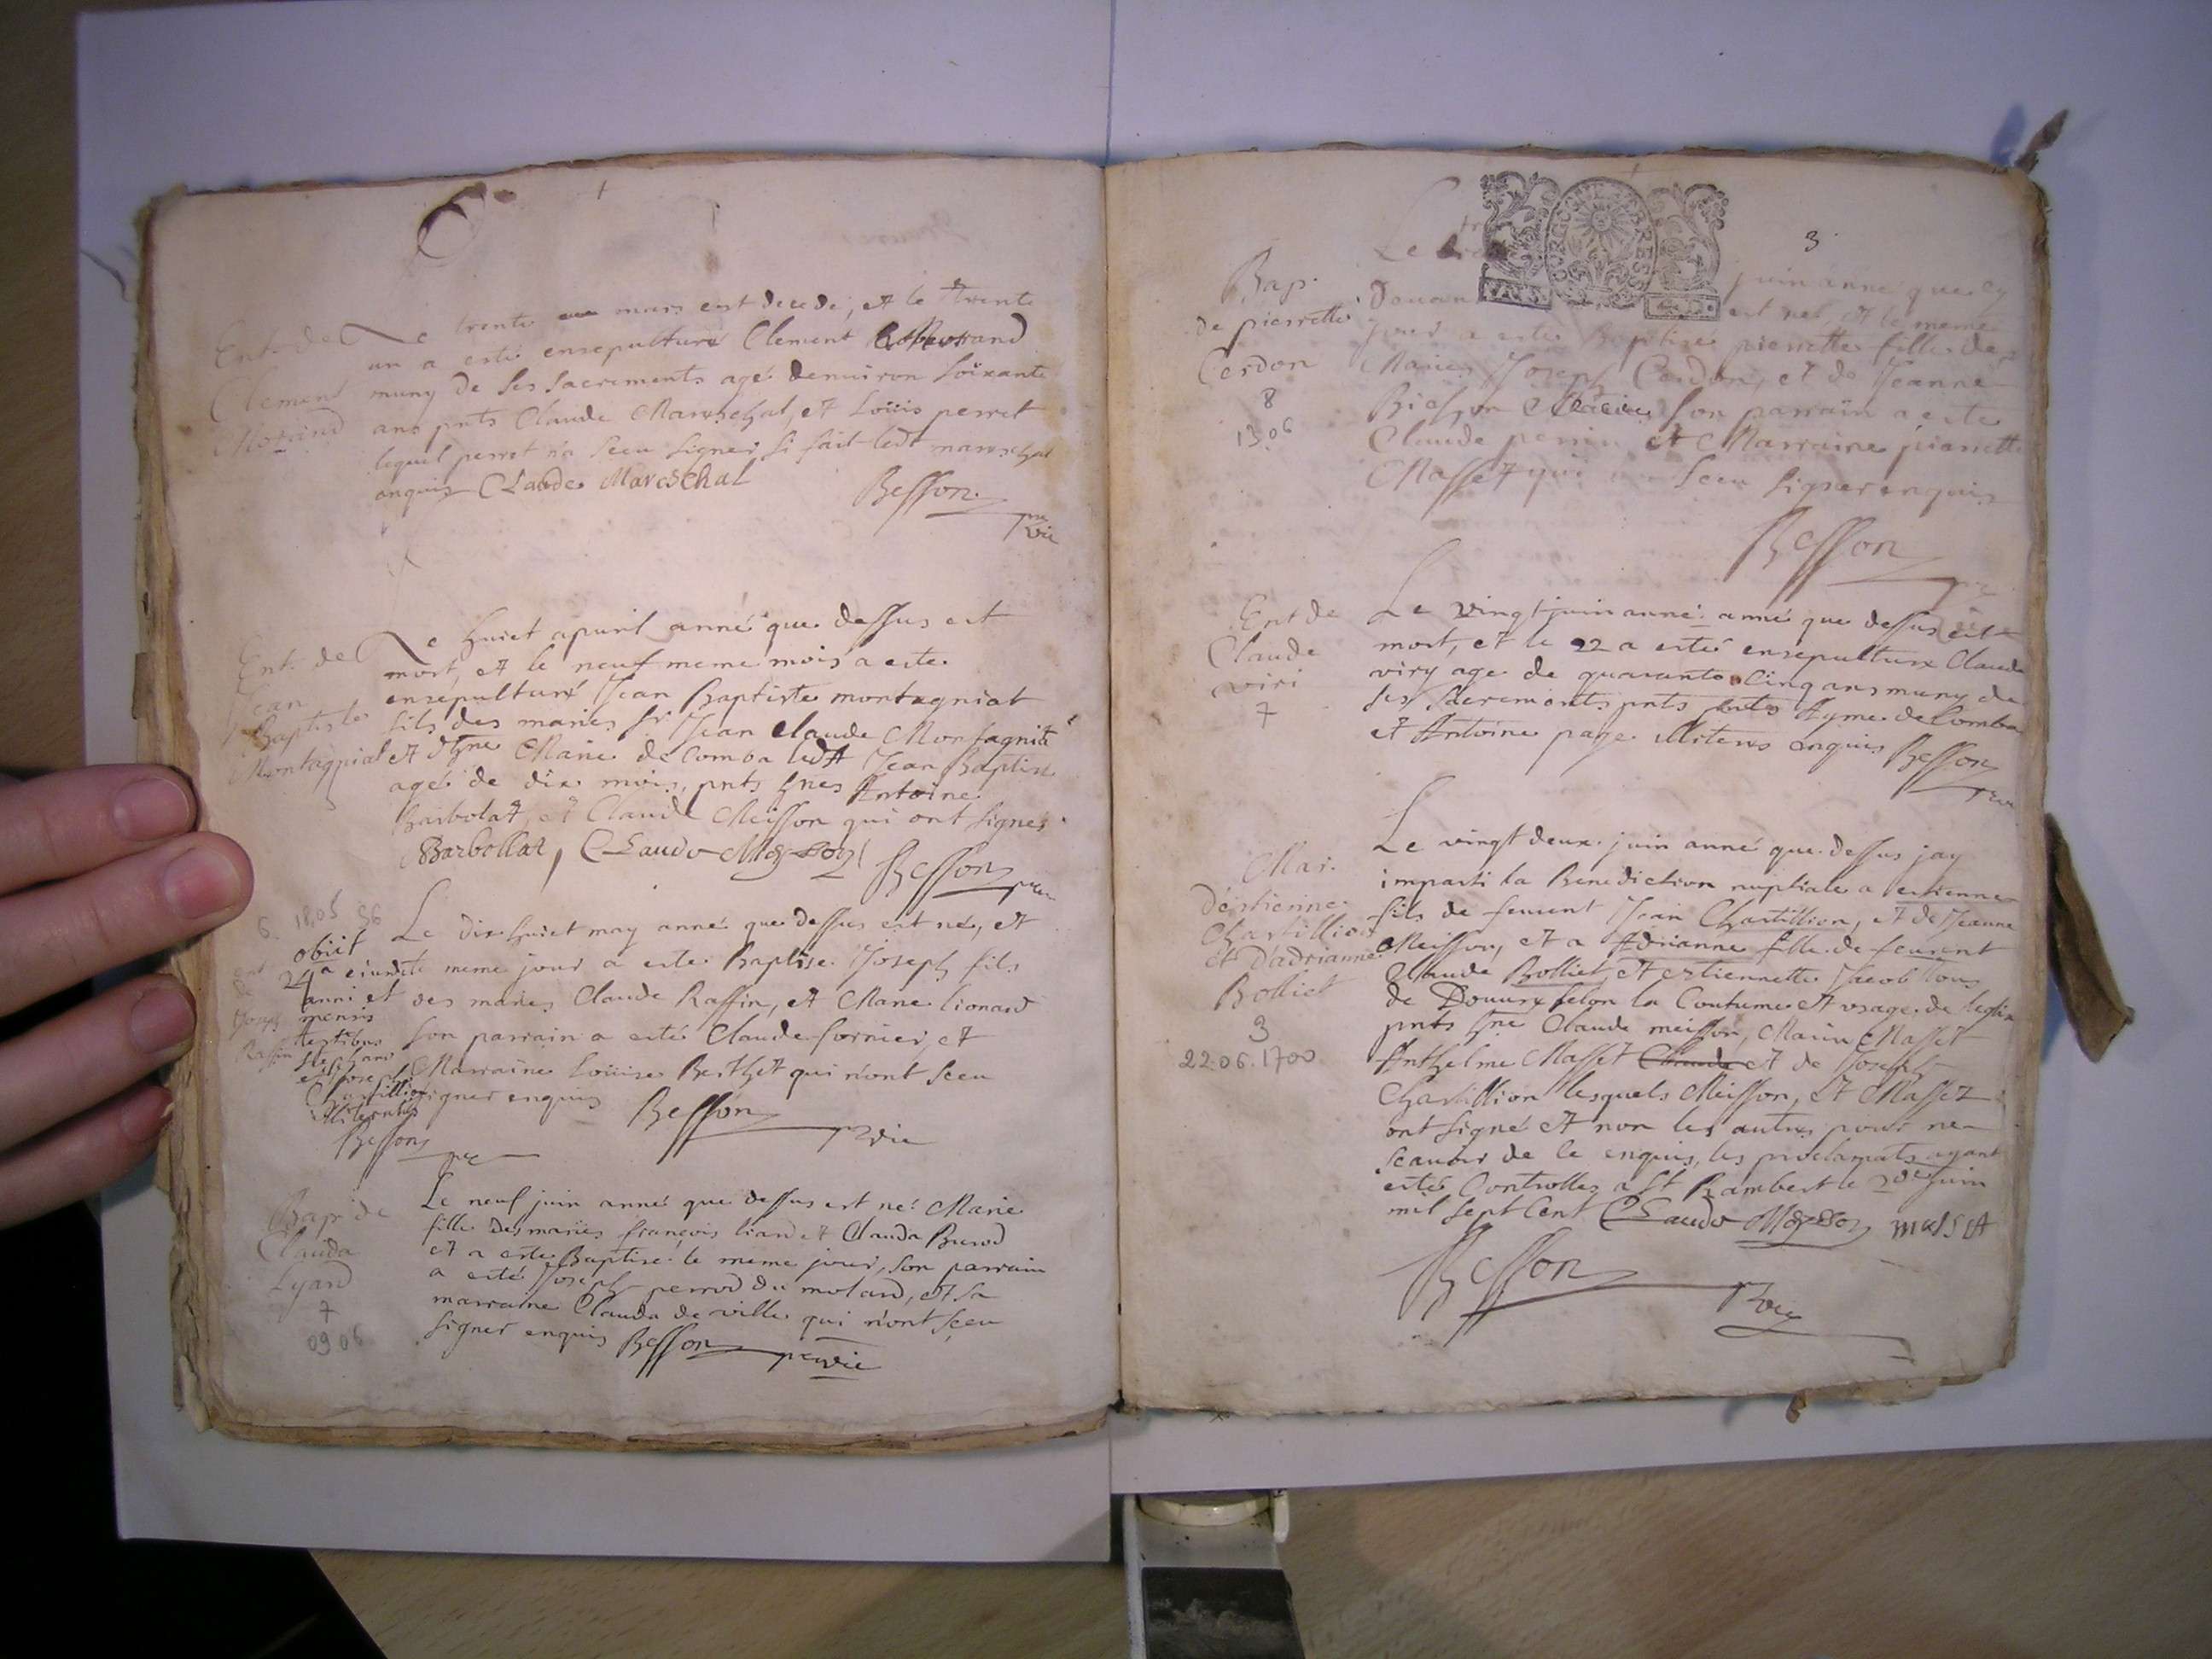 Ent. de
Clement
Morand
Le trente mars est decede, et le trente
un a esté ensepulturé Clement
muny de ses sacrements agé denuiron soixante
ans pnts Claude Mareschal, et Loüis perret
lequel perret n'a sceu signer si fait ledt mareschal
enquis Claude MaresChal
Besson
pre vic
Ent. de
Jean
Baptiste
Montagniat
Le huict apuril anné que dessus est
mort, et le neuf meme mois a este
ensepulturé Jean Baptiste montagniat
fils des maries Sr Jean Claude Montagniat
et Marie de Comba ledt Jean Baptiste
agé de dix mois, pnts Antoine
Barbolat, et Claude Meisson qui ont signes
Barbollat, Claude
Besson pre
6. 18.05
obiit
24a eiusde
anni et
mensis
testibus
et Joseph
Chastillion
illiteratis
Besson
pre
Ent
de
Joseph
Raffin
Le dix huict may anné que dessus est né, et
meme jour a este Baptise Joseph fils
des maries Claude Raffin, et Marie lionard
son parrain a esté Claude fornier, et
Marraine Loüise Berthet qui n'ont sceu
signer enquis
Besson
pre vic
Bap. de
Clauda
Lyard
7
09 06
Le neuf juin anné que dessus est né Marie
fille des maries françois liard et Clauda Burod
et a este Baptisé le meme jour, son parrain
a esté Joseph perrod du molard, et sa
marraine Clauda de ville qui n'ont sceu
signer enquis Besson pre vic
3
Bap.
de pierrette
Cerdon
8
13 06
Le
juin anné que
Douan est né, et le meme
jour a este Baptisée pierrette fille des
Maries Joseph Cerdon, et de Jeanne
son parrain a este
Claude perrin et Marraine pierrette
Masset qui sceu signer enquis
Besson
pre
Ent de
Claude
viri
7
Le vingt juin anné anné que dessus est
mort, et le 22 a esté ensepulture Claude
viry age de quarante cinq ans muny de
ses sacrements pnts Ayme de Comba
et Antoine page illiteres enquis Besson
pre
Mar.
d'estienne
Chastillion
et D'adrianne
Bolliet
3
22.06.1700
Le vingt deux juin anné que dessus jay
imparti la Benediction nuptiale a estienne
fils de feurent Jean Chastillion, et de Jeanne
Meisson, et a Adrianne fille de feurent
Claude Bolliet, et estiennette Jacob tous
de Douure selon la Coutume et usage de leglise
pnts Claude meisson, Marin Masset
Anthelme Masset Claude et de Joseph
Chastillion lesquels Meisson, et Masset
ont signé et non les autres pour ne
scauoir de ce enquis, les proclamats ayant
estés Controlles a St Rambert le juin
mil sept Cent Claude masset
Besson
pre vic